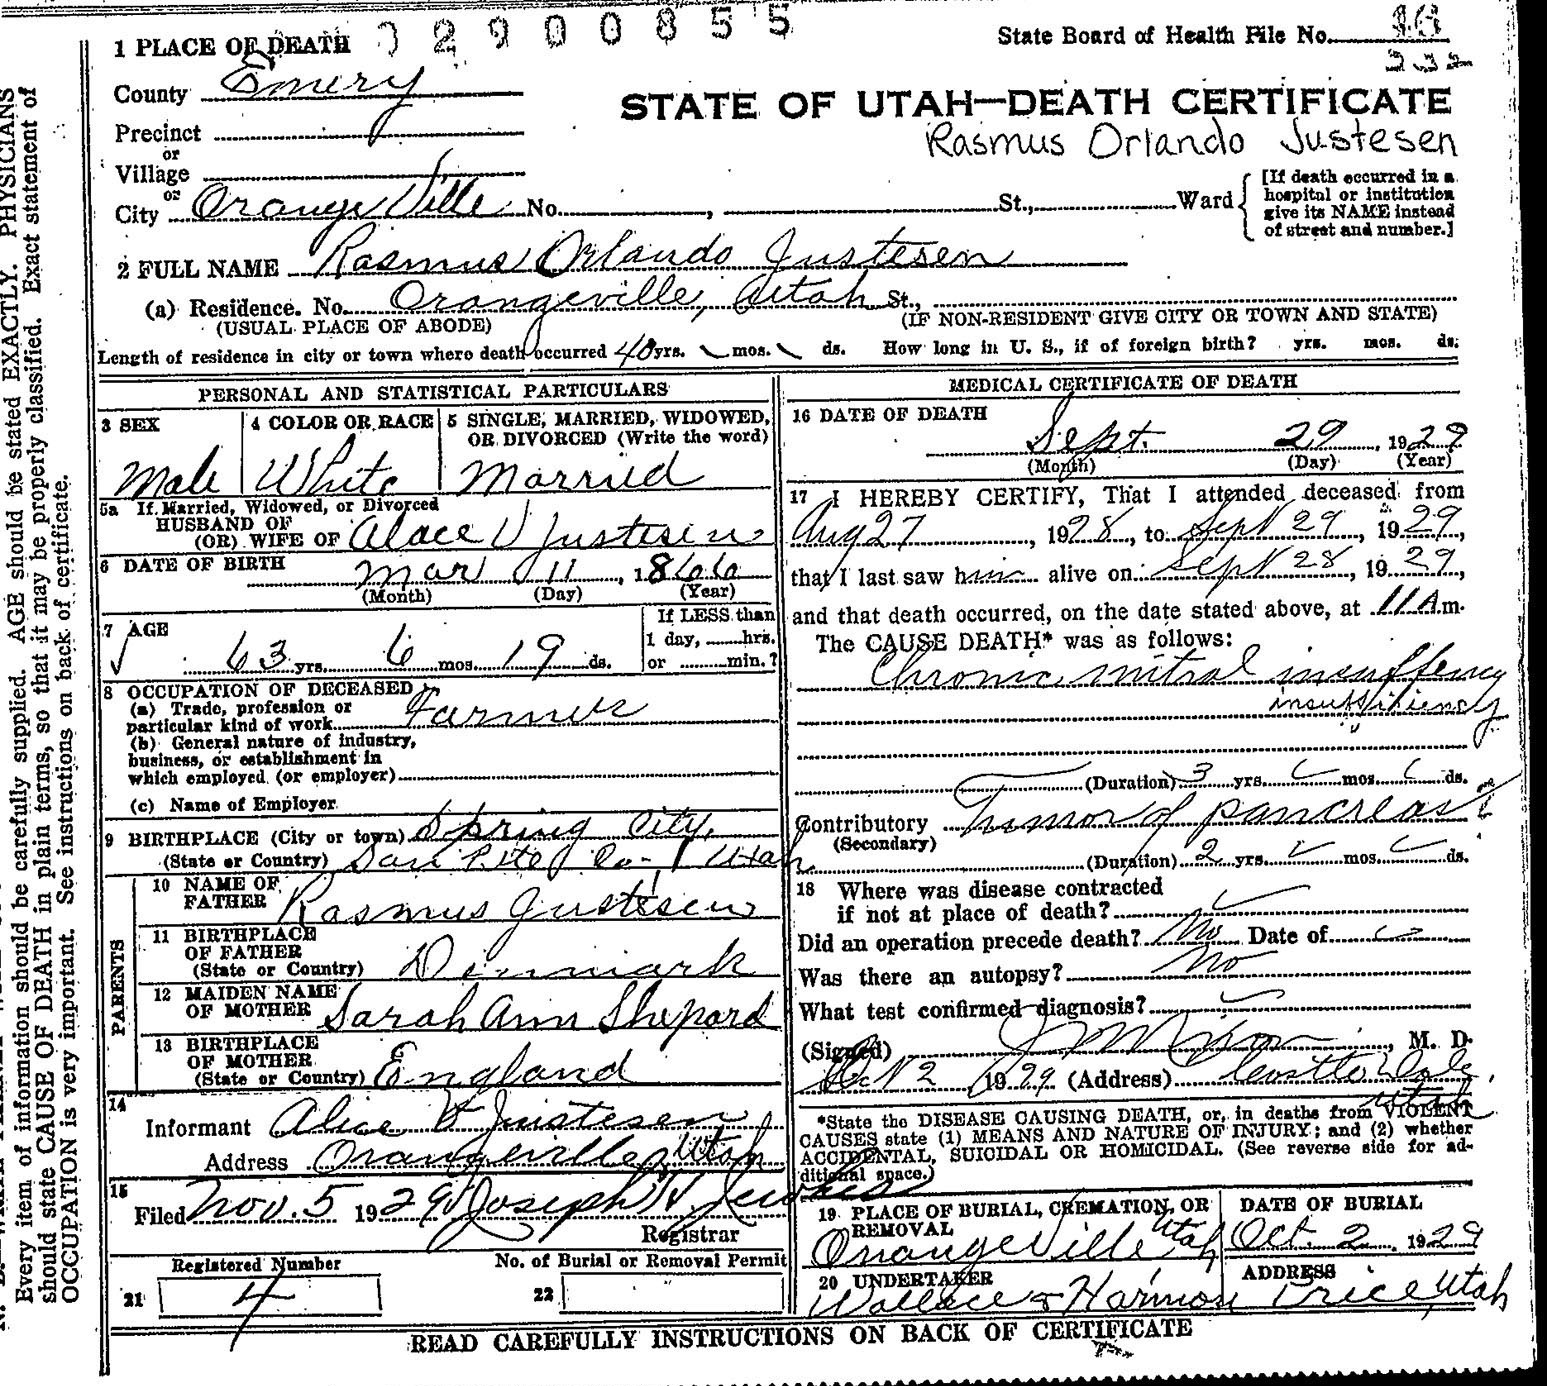 02900855
1 PLACE OF DEATH
State Board of Health File No.
County Emery
STATE OF UTAH—DEATH CERTIFICATE
Precinct
Rasmus Orlando Justesen
or
Village
or
City Orangeville No. , St., Ward
[If death occurred in a
hospital or institution
give its NAME instead
of street and number.]
2 FULL NAME Rasmus Orlando Justesen
(a) Residence. No. Orangeville, Utah St.,
(USUAL PLACE OF ABODE) (IF NON-RESIDENT GIVE CITY OR TOWN AND STATE)
Length of residence in city or town where death occurred 40 yrs. mos. ds. How long in U. S., if of foreign birth? yrs. mos. ds.
PERSONAL AND STATISTICAL PARTICULARS
3 SEX 4 COLOR OR RACE 5 SINGLE, MARRIED, WIDOWED,
OR DIVORCED (Write the word)
Male White Married
5a If Married, Widowed, or Divorced
HUSBAND OF
(OR) WIFE OF Alace V Justesen
6 DATE OF BIRTH Mar 11, 1866
(Month) (Day) (Year)
7 AGE
If LESS than
1 day, hrs.
63 yrs. 6 mos. 19 ds. or min.?
8 OCCUPATION OF DECEASED
(a) Trade, profession or
particular kind of work Farmer
(b) General nature of industry,
business, or establishment in
which employed (or employer)
(c) Name of Employer
9 BIRTHPLACE (City or town) Spring City,
(State or Country) San Pete Co- Utah
PARENTS
10 NAME OF
FATHER Rasmus Justesen
11 BIRTHPLACE
OF FATHER
(State or Country) Dinmark
12 MAIDEN NAME
OF MOTHER Sarah Ann Shepard
13 BIRTHPLACE
OF MOTHER
(State or Country) England
14
Informant Alice V Justesen
Address Orangeville, Utah
15
Filed Nov. 5 1929 Joseph H
Registrar
Registered Number No. of Burial or Removal Permit
21 4 22
MEDICAL CERTIFICATE OF DEATH
16 DATE OF DEATH
Sept. 29, 1929
(Month) (Day) (Year)
17 I HEREBY CERTIFY, That I attended deceased from
Aug 27, 1928, to Sept 29, 1929,
that I last saw him alive on Sept 28, 1929,
and that death occurred, on the date stated above, at 11 A m.
The CAUSE DEATH* was as follows:
Chronic mitral insuffency
insufficiency
(Duration) 3 yrs. mos. ds.
Contributory Tumor of pancreas
(Secondary)
(Duration) 2 yrs. mos. ds.
18 Where was disease contracted
if not at place of death?
Did an operation precede death? No Date of
Was there an autopsy? No
What test confirmed diagnosis?
(Signed) , M. D.
Oct 2 1929 (Address) Castle Dale,
Utah
*State the DISEASE CAUSING DEATH, or, in deaths from VIOLENT
CAUSES state (1) MEANS AND NATURE OF INJURY; and (2) whether
ACCIDENTAL, SUICIDAL OR HOMICIDAL. (See reverse side for ad-
ditional space.)
19 PLACE OF BURIAL, CREMATION, OR
REMOVAL
Orrangeville Utah
DATE OF BURIAL
Oct. 2, 1929
20 UNDERTAKER ADDRESS
Wallace & Harmon Price, Utah
READ CAREFULLY INSTRUCTIONS ON BACK OF CERTIFICATE
Every item of information should be carefully supplied. AGE should be stated EXACTLY. PHYSICIANS
should state CAUSE OF DEATH in plain terms, so that it may be properly classified. Exact statement of
OCCUPATION is very important. See instructions on back of certificate.